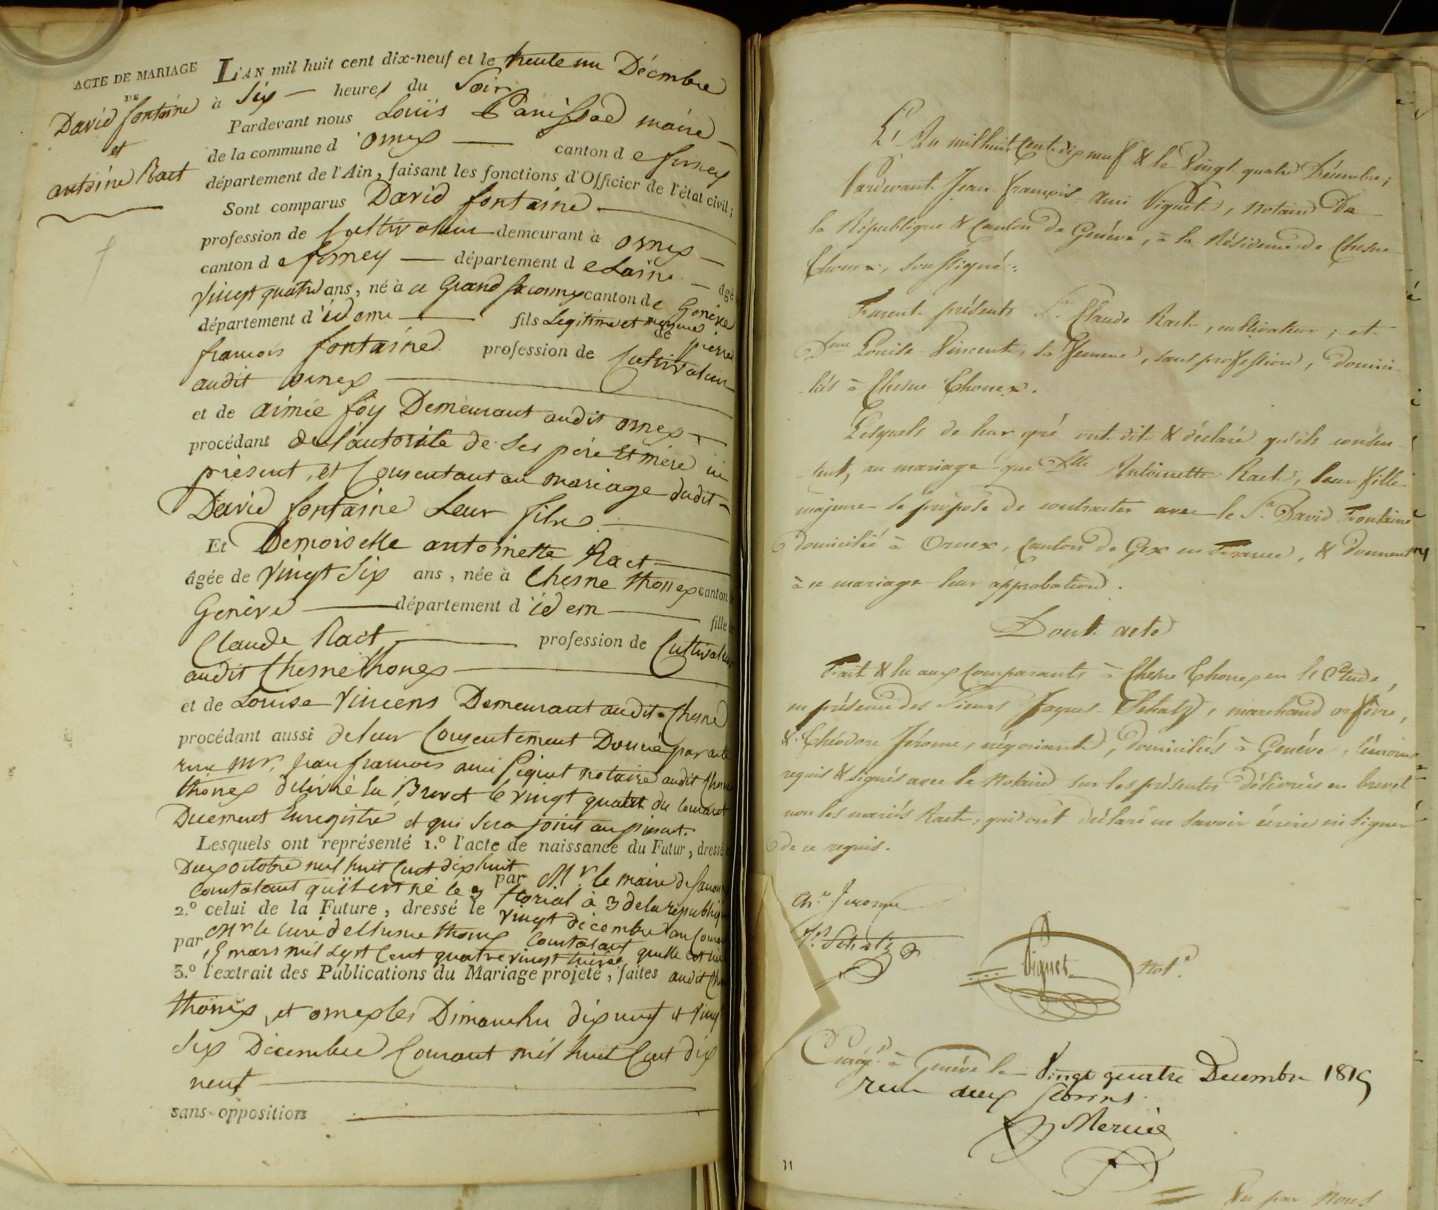 ACTE DE MARIAGE
DE
David fontaine
et
antoine Ract
L'AN mil huit cent dix-neuf et le trente un Décembre
à Six heures du Soir
Pardevant nous Louis Panissod maire
de la commune d'ornex canton de ferney
département de l'Ain, faisant les fonctions d'Officier de l'état civil;
Sont comparus David fontaine
profession de Cultivateur demeurant à ornex
canton de ferney département de Lain âgé
vingt quatre ans, né à au Grand Saconnex canton de Genève
département d'idem fils Légitime et majeur de pierre
francois fontaine profession de Cultivateur
audit ornex
et de aimée foy Demeurant audit ornex
procédant de l'autorité de Ses père et mère ici
présent, et Consentant au mariage dudit
David fontaine Leur fils
Et Demoiselle antoinette Ract
âgée de vingt Six ans, née à Chesne thonex canton
Genève département d'idem fille
Claude Ract profession de Cultivateur
audit Chesne thonex
et de Louise Vincens Demeurant audit Chesne
procédant aussi de leur Consentement Donné par acte
reçu Mr. Jean francois ami Piguet notaire audit Chesne
thonex délivré en Brevet le vingt quatre du courant
Duement Enregistré et qui sera joint au présent
Lesquels ont représenté 1.° l'acte de naissance du Futur, dressé
Deux octobre mil huit Cent dix huit par Mr le maire de
Constatant qu'il est né le 9 floréal a 3 de la république
2.° celui de la Future, dressé le vingt décembre au Courant
par Mr le curé de Chesne thonex Constatant qu'elle est née
mars mil Sept Cent quatre vingt treize
3.° l'extrait des Publications du Mariage projeté, faites audit Chesne
thonex, et ornex les Dimanches dix neuf et vingt
Six Décembre Courant mil huit Cent dix
neuf
sans opposition
L'An mil huit Cent dix neuf & le Vingt quatre Décembre;
Pardevant Jean François Ami Piguet, Notaire De
la République & Canton de Genève, à la Résidence de Chesne
Thonex, Soussigné:
Furent présents Sr. Claude Ract, cultivateur, et
Dme Louise Vincent, sa femme, sans profession, domici-
liés à Chesne Thonex.
Lesquels de leur gré ont dit & déclaré qu'ils consen-
tent, au mariage que Dlle Antoinette Ract, leur fille
majeure se propose de contracter avec le Sr. David Fontaine
domicilié à Ornex, Canton de Gex en France, & donnent
à ce mariage leur approbation.
Dont acte
Fait & lu aux Comparants à Chesne Thonex en l'Etude,
en présence des Sieurs Jaques Schatz, marchand orfèvre,
& Théodore Jérome, négociant, domiciliés à Genève, témoins
requis & signés avec le Notaire sur les présentes délivrées en brevet
non les mariés Ract, qui ont déclaré ne savoir écrire ni signer
de ce requis.
Th.e Jerome
Schatz
Piguet Not.e
Enreg.é à Genève le Vingt quatre Decembre 1819
reçu deux florins
Mercié
11
Vu par Nous